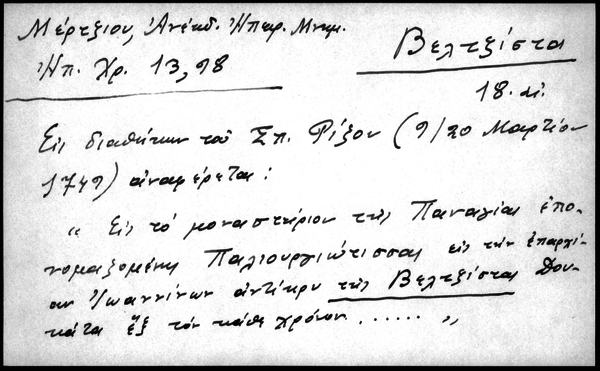 Μέρτζιου, Ἀνέκδ. Ἠπειρ. Μνημ.
Ἠπ. Χρ. 13, 98
Βελτζίστα
18. αἰ.
Εἰς διαθήκην τοῦ Σπ. Ρίζου (9/20 Μαρτίου
1749) ἀναφέρεται:
" Εἰς τό μοναστήριον τῆς Παναγίας ἐπο-
νομαζομένης Παλιουργιώτισσας εἰς τήν ἐπαρχί-
αν Ἰωαννίνων ἀντίκρυ τῆς Βελτζίστας Δου-
κάτα ἕξ τόν κάθε χρόνον ...... "